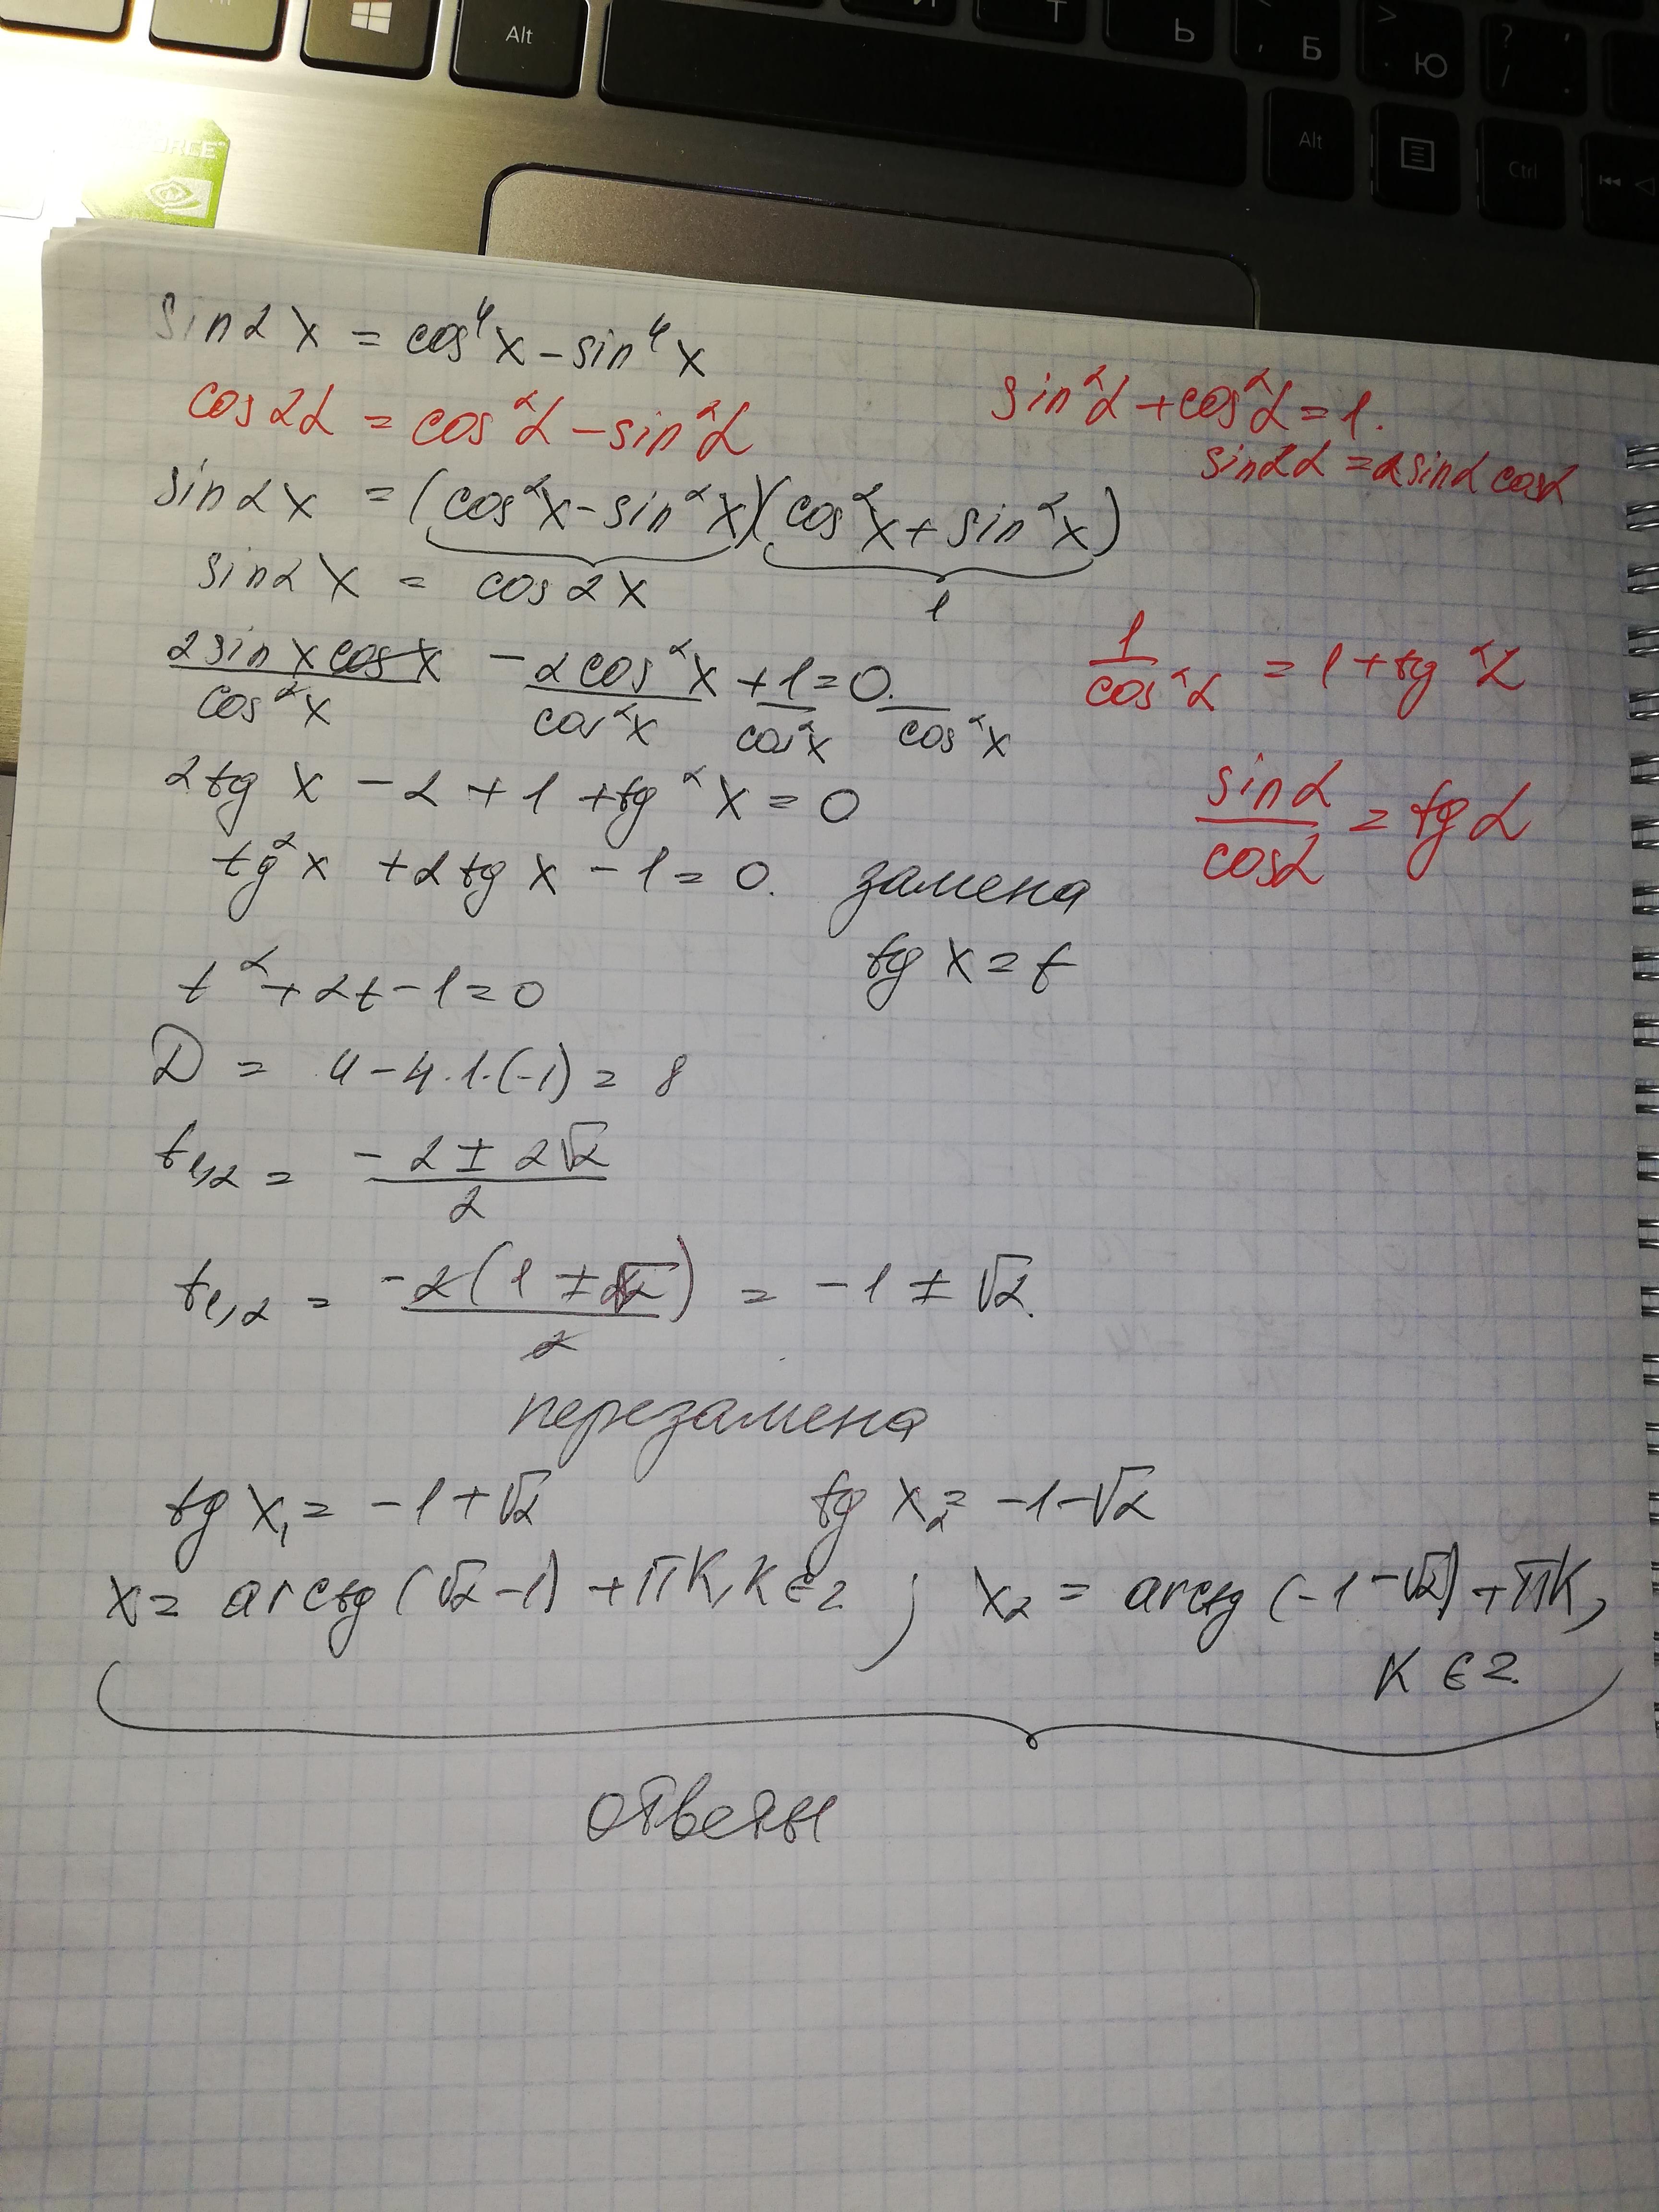 Alt
Т
Ь
, Б
. Ю
>
? ,
/
Alt
Ctrl
sin2x = cos⁴x – sin⁴x
cos2α = cos²α – sin²α
sin²α + cos²α = 1.
sin2α = 2sinα cosα
sin2x = (cos²x – sin²x)(cos²x + sin²x)
sin2x = cos2x
1
2sin x cos x / cos²x – 2cos²x / cos²x + 1 / cos²x = 0. / cos²x
1 / cos²α = 1 + tg²α
2tg x – 2 + 1 + tg²x = 0
sinα / cosα = tgα
tg²x + 2tg x – 1 = 0. замена
tg x = t
t² + 2t – 1 = 0
D = 4 – 4·1·(-1) = 8
t₁,₂ = – 2 ± 2√2 / 2
t₁,₂ = -2(1 ± √2) / 2 = – 1 ± √2.
перезамена
tg x₁ = – 1 + √2 tg x₂ = – 1 – √2
x = arctg(√2 – 1) + πK, K ∈ Z ; x₂ = arctg(-1 – √2) + πK,
K ∈ Z.
ответы